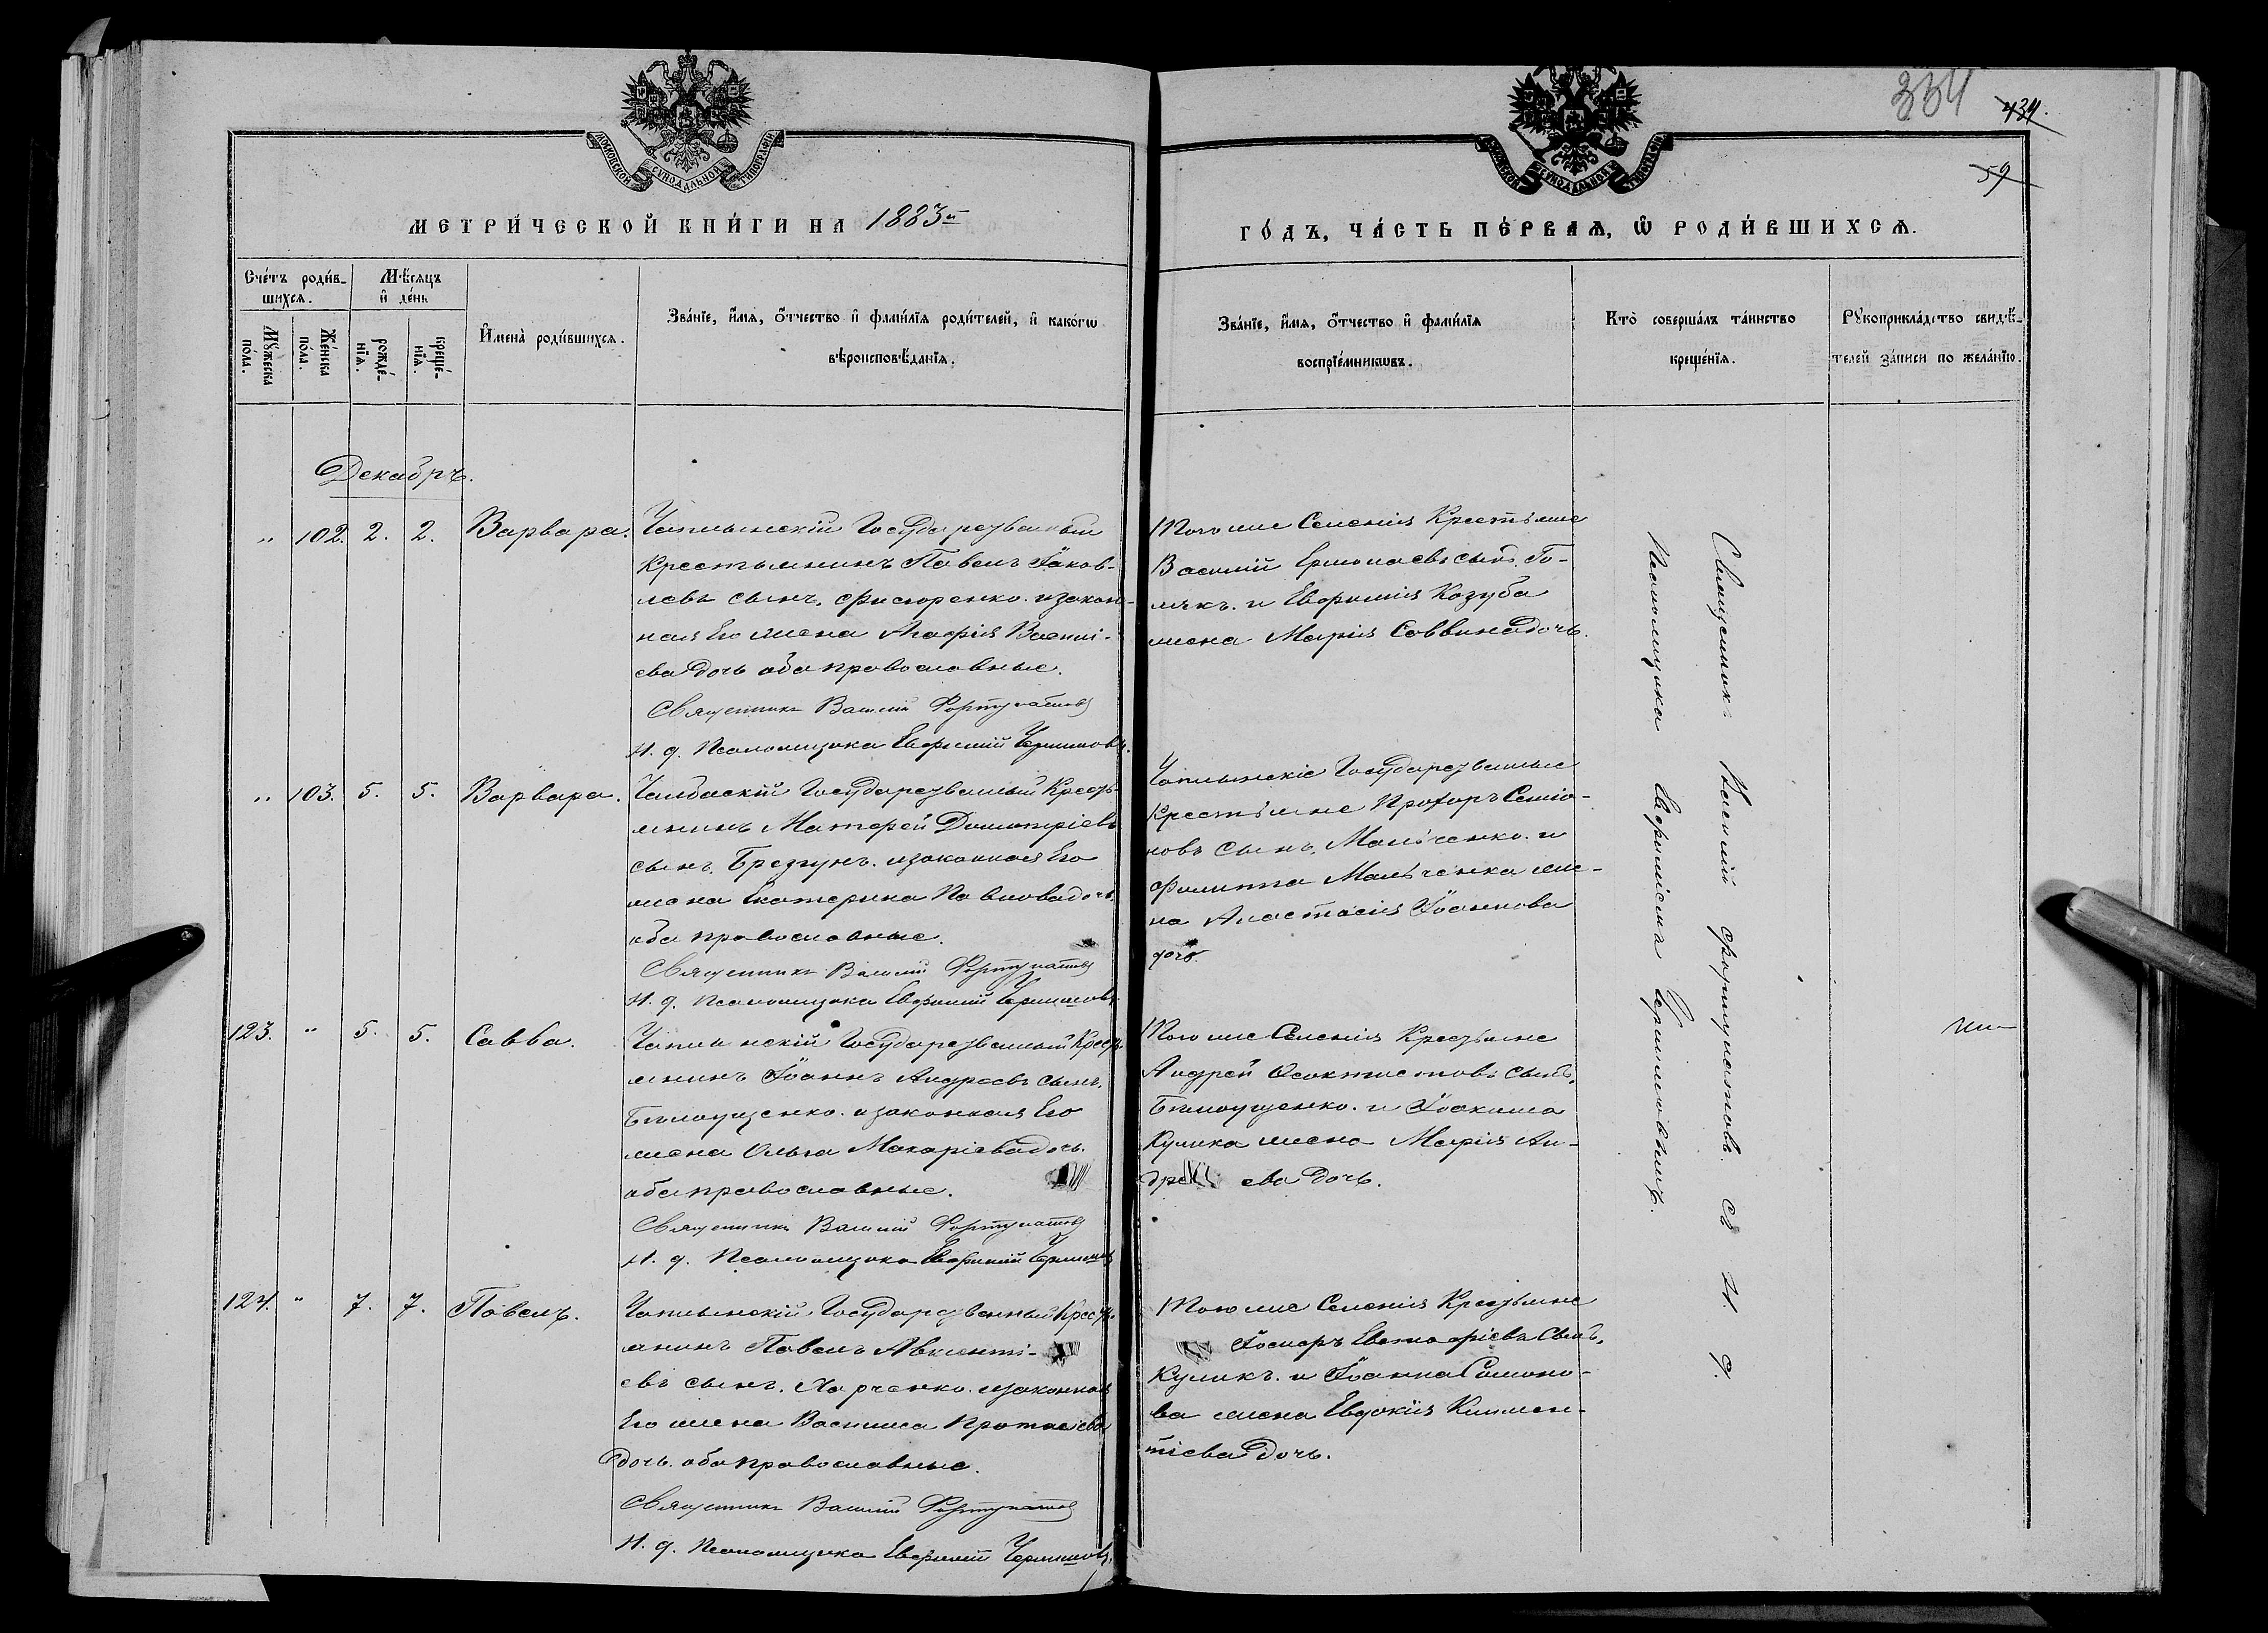 334
434.
59
МОСКОВСКОЙ СѴНОДАЛЬНОЙ ТИПОГРАФІИ
МОСКОВСКОЙ СѴНОДАЛЬНОЙ ТИПОГРАФІИ
МЕТРИ́ЧЕСКОЙ КНИ́ГИ НА 1883й
ГО́ДЪ, ЧА́СТЬ ПЕ́РВАѦ, Ѡ РОДИ́ВШИХСѦ.
Сче́тъ роди́в-
шихсѧ.
Мꙋ́жеска по́ла.
Же́нска по́ла.
Мѣ́сѧцъ
и де́нь
рожде́-
нїѧ.
креще́-
нїѧ.
И҆мена̀ роди́вшихсѧ.
Зва́нїе, и҆́мѧ, ѻ҆́тчество и҆ фами́лїѧ роди́телей, и҆ како́гѡ
вѣроисповѣ́данїѧ.
Зва́нїе, и҆́мѧ, ѻ҆́тчество и҆ фами́лїѧ
воспрїе́мникѡвъ.
Кто̀ соверша́лъ та́инство
креще́нїѧ.
Рꙋкоприкла́дство свидѣ́-
телей за́писи по жела́нїю.
Декабрь.
" 102. 2. 2. Варвара.
Чаплынскій Государственный
Крестьянинъ Павелъ Іаков-
левъ сынъ, Фисюренко. и закон-
ная Его жена Агафія Васили-
ева дочь оба православные.
Священникъ Василій Фортунатовъ
И. д. Псаломщика Евфимій Чернышовъ.
Того же Селенія Крестьяне
Василій Ермолаевъ сынъ, Го-
лякъ. и Евфимія Козуба
жена Марія Саввина дочь.
" 103. 5. 5. Варвара.
Чалбаскій Государственный Кресть-
янинъ Матфей Димитріевъ
сынъ, Брезгунъ. и законная Его
жена Екатерина Павлова дочь.
оба православные.
Священникъ Василій Фортунатовъ
И. д. Псаломщика Евфимій Чернышовъ.
Чаплынскіе Государственные
Крестьяне Прохоръ Семіо-
новъ сынъ, Мальченко. и
Филиппа Мальченка же-
на Анастасія Іоаннова
дочь.
123. " 5. 5. Савва.
Чаплынскій Государственный Кресть-
янинъ Іоаннъ Андреевъ сынъ,
Билоущенко. и законная Его
жена Ольга Макаріева дочь.
оба православные.
Священникъ Василій Фортунатовъ
И. д. Псаломщика Евфимій Чернышовъ
Того же Селенія Крестьяне
Андрей Феоктистовъ сынъ,
Билоущенко. и Іоакима
Кулика жена Марія Ан-
дреева дочь.
124. " 7. 7. Павелъ.
Чаплынскій Государственный Кресть-
янинъ Павелъ Авксенті-
евъ сынъ, Харченко. и законная
Его жена Василиса Протасіева
дочь. оба православные.
Священникъ Василій Фортунатовъ
И. д. Псаломщика Евфимій Чернышовъ.
Того же Селенія Крестьяне
Іосифъ Евстафіевъ сынъ,
Куликъ. и Іоанна Самоно-
ва жена Евдокія Климен-
тіева дочь.
Священникъ Василій Фортунатовъ. съ И. д.
Псаломщика Евфиміемъ Чернышовымъ.